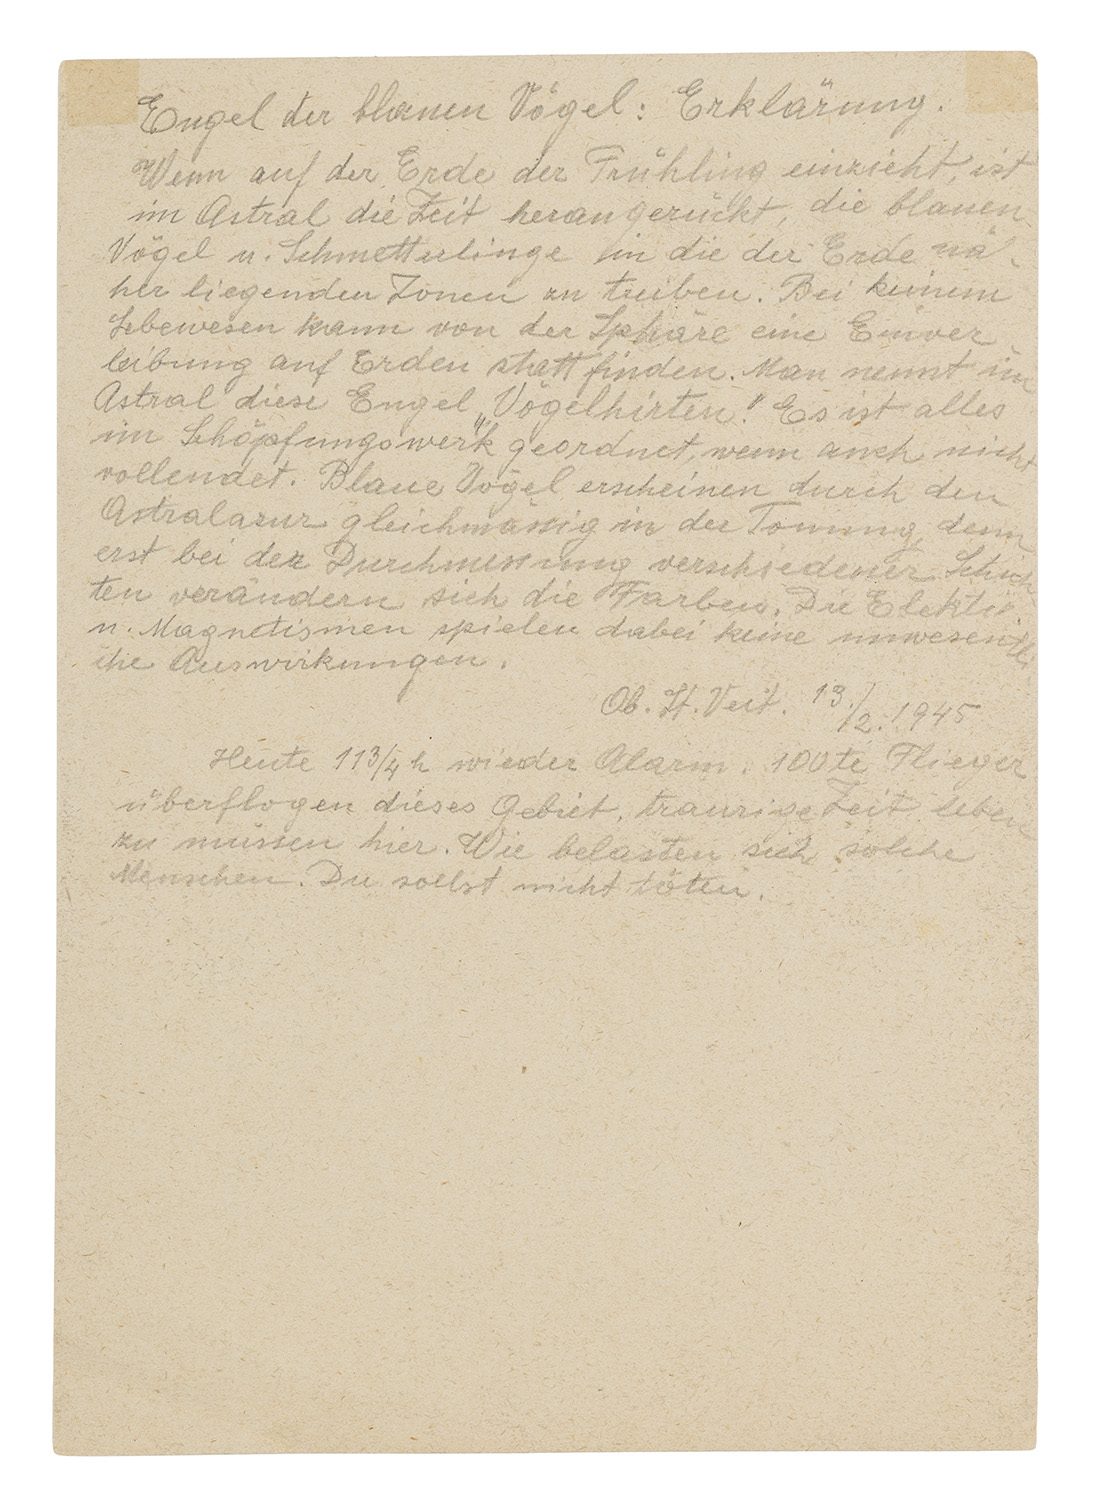 Engel der blauen Vögel: Erklärung.
Wenn auf der Erde der Frühling einzieht, ist
im Astral die Zeit herangerückt, die blauen
Vögel u. Schmetterlinge in die der Erde nä-
her liegenden Zonen zu treiben. Bei keinem
Lebewesen kann von der Sphäre eine Einver-
leibung auf Erden stattfinden. Man nennt im
Astral diese Engel „Vögelhirten." Es ist alles
im Schöpfungswerk geordnet, wenn auch nicht
vollendet. Blaue Vögel erscheinen durch den
Astralazur gleichmässig in der Tönung, denn
erst bei der Durchmessung verschiedener Schich-
ten verändern sich die Farben. Die Elektri
u. Magnetismen spielen dabei keine unwesentli
che Auswirkungen.
Ob. St. Veit. 13./2. 1945
Heute 11 3/4 h wieder Alarm. 100te Flieger
überflogen dieses Gebiet, traurige Zeit leben
zu müssen hier. Wie belasten sich solche
Menschen. Du sollst nicht töten.